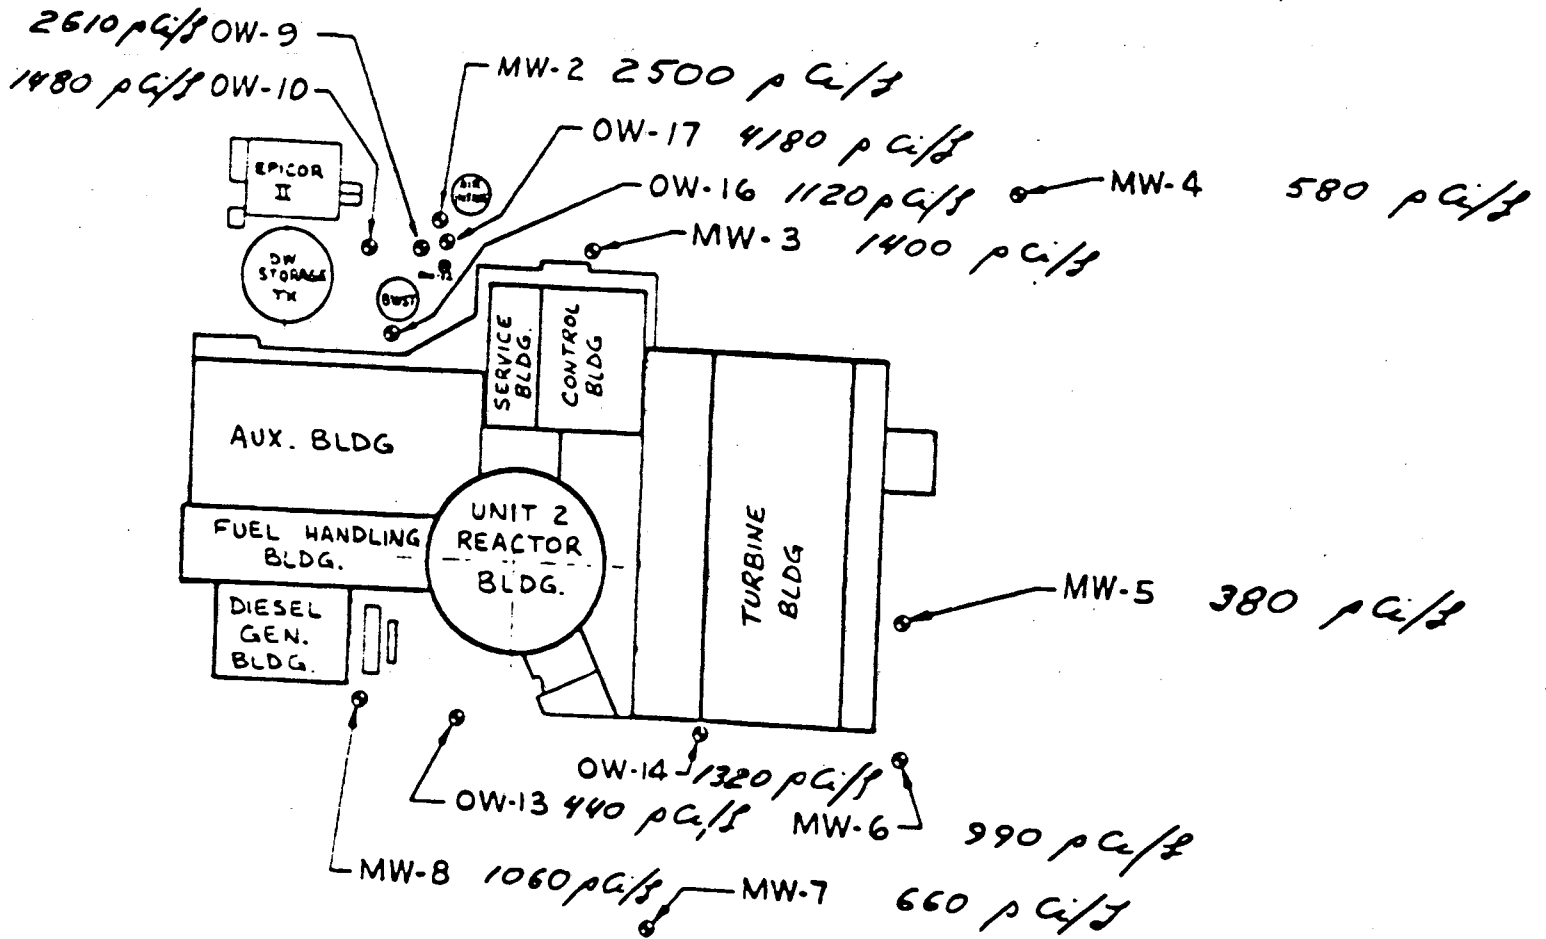 2610 pCi/l OW-9
1480 pCi/l OW-10
MW-2 2500 pCi/l
OW-17 4180 pCi/l
OW-16 1120 pCi/l
MW-4 580 pCi/l
MW-3 1400 pCi/l
EPICOR
II
AIR
STORAGE
TK
BWST
SERVICE
BLDG.
CONTROL
BLDG
AUX. BLDG
FUEL HANDLING
BLDG.
UNIT 2
REACTOR
BLDG.
TURBINE
BLDG
DIESEL
GEN.
BLDG.
MW-5 380 pCi/l
OW-14 1320 pCi/l
OW-13 440 pCi/l
MW-6 990 pCi/l
MW-8 1060 pCi/l
MW-7 660 pCi/l